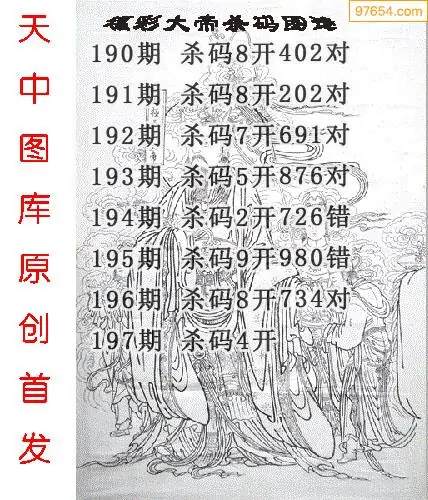 97654.com
福彩大帝杀码图谜
190期 杀码8开402对
191期 杀码8开202对
192期 杀码7开691对
193期 杀码5开876对
194期 杀码2开726错
195期 杀码9开980错
196期 杀码8开734对
197期 杀码4开
天中图库原创首发